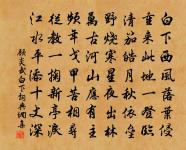 白下西風落葉侵
重來此地一登臨
清笳皓月秋依壘
野燒寒星夜出林
萬古河山應有主
頻年戈甲苦相尋
從教一掬新亭淚
江水平添十丈深
顧炎武白下詞典網書